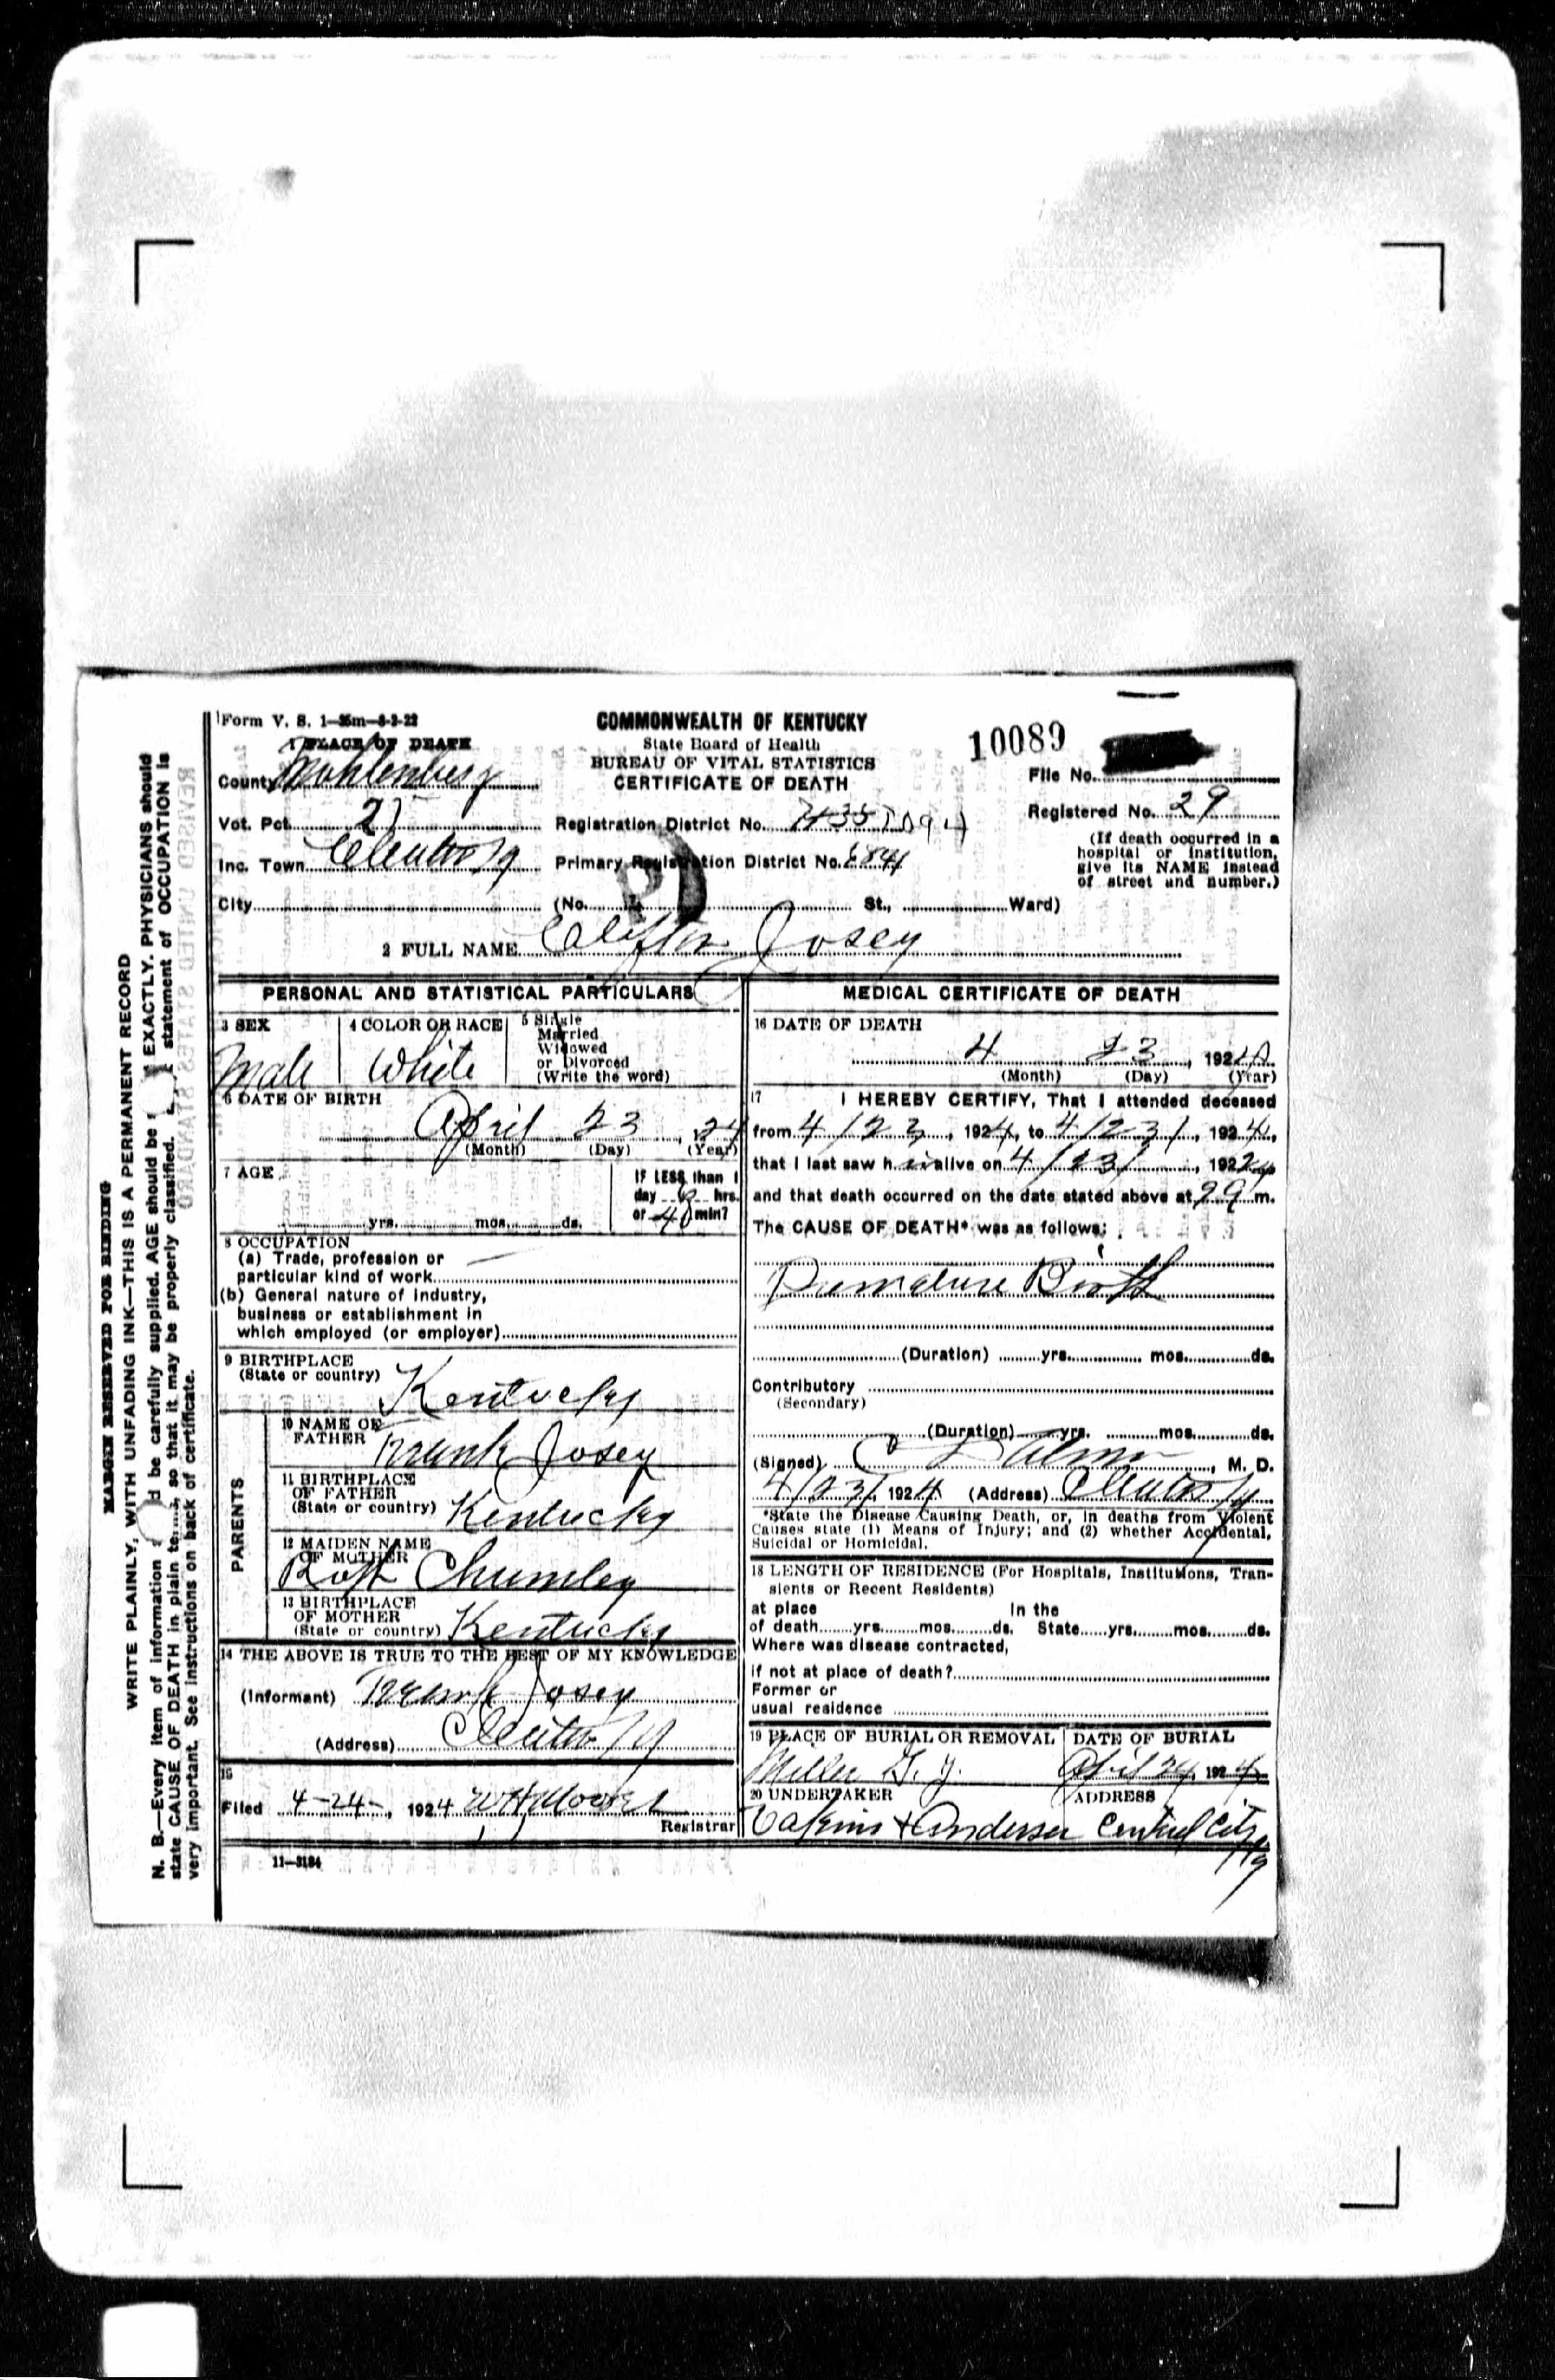 Form V. S. 1—35m—8-2-22
COMMONWEALTH OF KENTUCKY
State Board of Health
BUREAU OF VITAL STATISTICS
CERTIFICATE OF DEATH
10089
File No.
Registered No. 29
(If death occurred in a
hospital or institution,
give its NAME instead
of street and number.)
1 PLACE OF DEATH
County Muhlenberg
Vot. Pct.
Registration District No.
Inc. Town
Primary Registration District No.
City (No. St., Ward)
2 FULL NAME Clifton Josey
PERSONAL AND STATISTICAL PARTICULARS
3 SEX
Male
4 COLOR OR RACE
White
5 Single
Married
Widowed
or Divorced
(Write the word)
6 DATE OF BIRTH
April 23, 24
(Month) (Day) (Year)
7 AGE
yrs. mos. ds.
IF LESS than 1
day hrs.
or 40 min?
8 OCCUPATION
(a) Trade, profession or
particular kind of work
(b) General nature of industry,
business or establishment in
which employed (or employer)
9 BIRTHPLACE
(State or country) Kentucky
PARENTS
10 NAME OF
FATHER Frank Josey
11 BIRTHPLACE
OF FATHER
(State or country) Kentucky
12 MAIDEN NAME
OF MOTHER
Chumley
13 BIRTHPLACE
OF MOTHER
(State or country) Kentucky
14 THE ABOVE IS TRUE TO THE BEST OF MY KNOWLEDGE
(Informant) Frank Josey
(Address)
15
Filed 4-24-, 1924 W H Moore
Registrar
11—3184
MEDICAL CERTIFICATE OF DEATH
16 DATE OF DEATH
4 23, 1924
(Month) (Day) (Year)
17 I HEREBY CERTIFY, That I attended deceased
from 4/23, 1924, to 4/23/, 1924,
that I last saw h alive on 4/23/, 1924
and that death occurred on the date stated above at m.
The CAUSE OF DEATH* was as follows:
Premature Birth
(Duration) yrs. mos. ds.
Contributory
(Secondary)
(Duration) yrs. mos. ds.
(Signed) , M. D.
4/23/, 1924 (Address)
*State the Disease Causing Death, or, in deaths from Violent
Causes state (1) Means of Injury; and (2) whether Accidental,
Suicidal or Homicidal.
18 LENGTH OF RESIDENCE (For Hospitals, Institutions, Tran-
sients or Recent Residents)
at place In the
of death yrs. mos. ds. State yrs. mos. ds.
Where was disease contracted,
if not at place of death?
Former or
usual residence
19 PLACE OF BURIAL OR REMOVAL
Miller G. Y.
DATE OF BURIAL
April 24, 1924
20 UNDERTAKER
ADDRESS
& Anderson Central City
Ky
MARGIN RESERVED FOR BINDING
WRITE PLAINLY, WITH UNFADING INK—THIS IS A PERMANENT RECORD
N. B.—Every item of information should be carefully supplied. AGE should be EXACTLY. PHYSICIANS should
state CAUSE OF DEATH in plain te so that it may be properly classified. statement of OCCUPATION is
very important. See instructions on back of certificate.